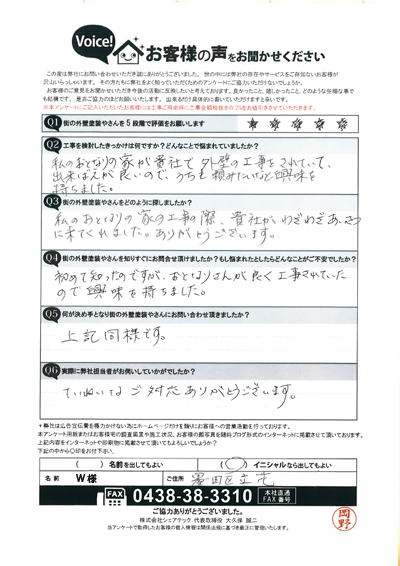 Voice!
お客様の声をお聞かせください
この度は弊社にお問い合わせいただき誠にありがとうございました。世の中には弊社の存在やサービスをご存知ないお客様が
沢山いらっしゃいます。その方たちも弊社をよく知っていただくためのアンケートにご協力いただけないでしょうか。
お客様のご意見をお聞かせいただき今後の活動に反映したいと考えております。良かったこと、嬉しかったこと、どのような些細な事で
も結構です。是非ご協力のほどお願いいたします。出来るだけ具体的に書いていただけますと幸いです。
※本アンケートにご記入いただいたお客様には工事ご用命時に工事金額税抜きの2%をお値引きさせていただきます。
Q1 街の外壁塗装やさんを5段階で評価をお願いします
Q2 工事を検討したきっかけは何ですか?どんなことで悩まれていましたか?
私のおとなりの家が貴社で外壁の工事をされていて、
出来ばえが良いので、うちも頼みたいなと興味を
持ちました。
Q3 街の外壁塗装やさんをどのように探しましたか?
私のおとなりの家の工事の際、貴社が、わざわざあいさつ
に来てくれました。ありがとうございます。
Q4 街の外壁塗装やさんを知りすぐにお問合せ頂けましたか?もし悩まれたとしたらどんなことがご不安でしたか?
初めて知ったのですが、おとなりさんが良く工事されていた
ので興味を持ちました。
Q5 何が決め手となり街の外壁塗装やさんにお問い合わせ頂きましたか?
上記同様です。
Q6 実際に弊社担当者がお伺いしていかがでしたか?
ていねいなご対応ありがとうございます。
+弊社は広告宣伝費を極力かけない為にホームページだけを頼りにお客様への営業活動を行っております。
本アンケート用紙またはお客様宅の調査風景や施工状況、お客様の顔写真を随時ブログ形式のインターネットに掲載させて頂いております。
上記内容をインターネットや印刷物に掲載させて頂いてもよろしいでしょうか?
下記の中から〇印をお付下さい。
( )名前を出してもよい (〇)イニシャルなら出してもよい
名前 W様 ご住所 墨田区立花
FAX 0438-38-3310 本社直通 FAX番号
ご協力ありがとうございました。
株式会社シェアテック 代表取締役 大久保 誠二
当アンケートで取得したお客様の個人情報は関係法規に基づき厳正に管理いたします。
岡野